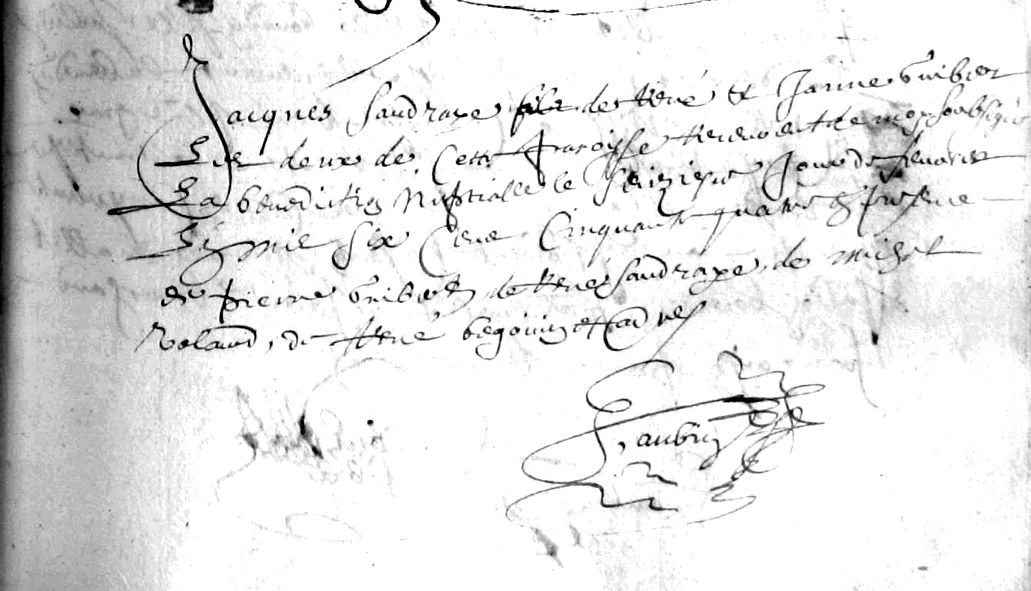 Jacques Saudraye fils de René et Janine Guibert
Les deux de Cette Paroisse Recevoient de moy soubsigné
La benediction Nuptialle le seiziesme Jour de feuvrier
L'an mil six Cent Cinquante quatre en presence
de Pierre Guibert, de René Saudraye, de Michel
Roland, de René begouin et autres
J aubin